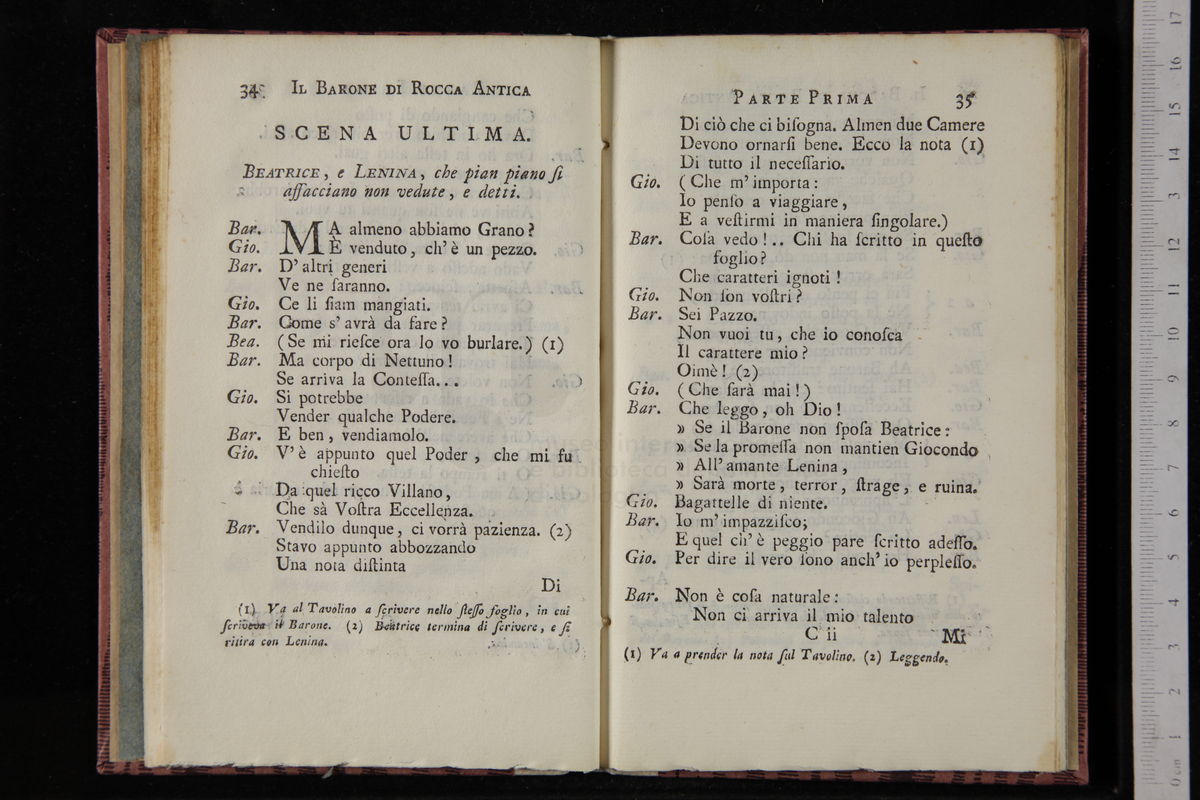 34 IL BARONE DI ROCCA ANTICA
SCENA ULTIMA.
BEATRICE, e LENINA, che pian piano ſi
affacciano non vedute, e detti.
Bar. MA almeno abbiamo Grano?
Gio. È venduto, ch' è un pezzo.
Bar. D' altri generi
Ve ne ſaranno.
Gio. Ce li ſiam mangiati.
Bar. Come s' avrà da fare?
Bea. (Se mi rieſce ora lo vo burlare.) (1)
Bar. Ma corpo di Nettuno!
Se arriva la Conteſſa...
Gio. Si potrebbe
Vender qualche Podere.
Bar. E ben, vendiamolo.
Gio. V' è appunto quel Poder, che mi fu
chieſto
Da quel ricco Villano,
Che sà Voſtra Eccellenza.
Bar. Vendilo dunque, ci vorrà pazienza. (2)
Stavo appunto abbozzando
Una nota diſtinta
Di
(1) Va al Tavolino a ſcrivere nello ſteſſo foglio, in cui
ſcriveva il Barone. (2) Beatrice termina di ſcrivere, e ſi
ritira con Lenina.
PARTE PRIMA 35
Di ciò che ci biſogna. Almen due Camere
Devono ornarſi bene. Ecco la nota (1)
Di tutto il neceſſario.
Gio. (Che m' importa:
Io penſo a viaggiare,
E a veſtirmi in maniera ſingolare.)
Bar. Coſa vedo!.. Chi ha ſcritto in queſto
foglio?
Che caratteri ignoti!
Gio. Non ſon voſtri?
Bar. Sei Pazzo.
Non vuoi tu, che io conoſca
Il carattere mio?
Oimè! (2)
Gio. (Che ſarà mai!)
Bar. Che leggo, oh Dio!
» Se il Barone non ſpoſa Beatrice:
» Se la promeſſa non mantien Giocondo
» All' amante Lenina,
» Sarà morte, terror, ſtrage, e ruina.
Gio. Bagattelle di niente.
Bar. Io m' impazziſco;
E quel ch' è peggio pare ſcritto adeſſo.
Gio. Per dire il vero ſono anch' io perpleſſo.
Bar. Non è coſa naturale:
Non ci arriva il mio talento
C ii Mi
(1) Va a prender la nota ſul Tavolino. (2) Leggendo.
0 cm 1 2 3 4 5 6 7 8 9 10 11 12 13 14 15 16 17